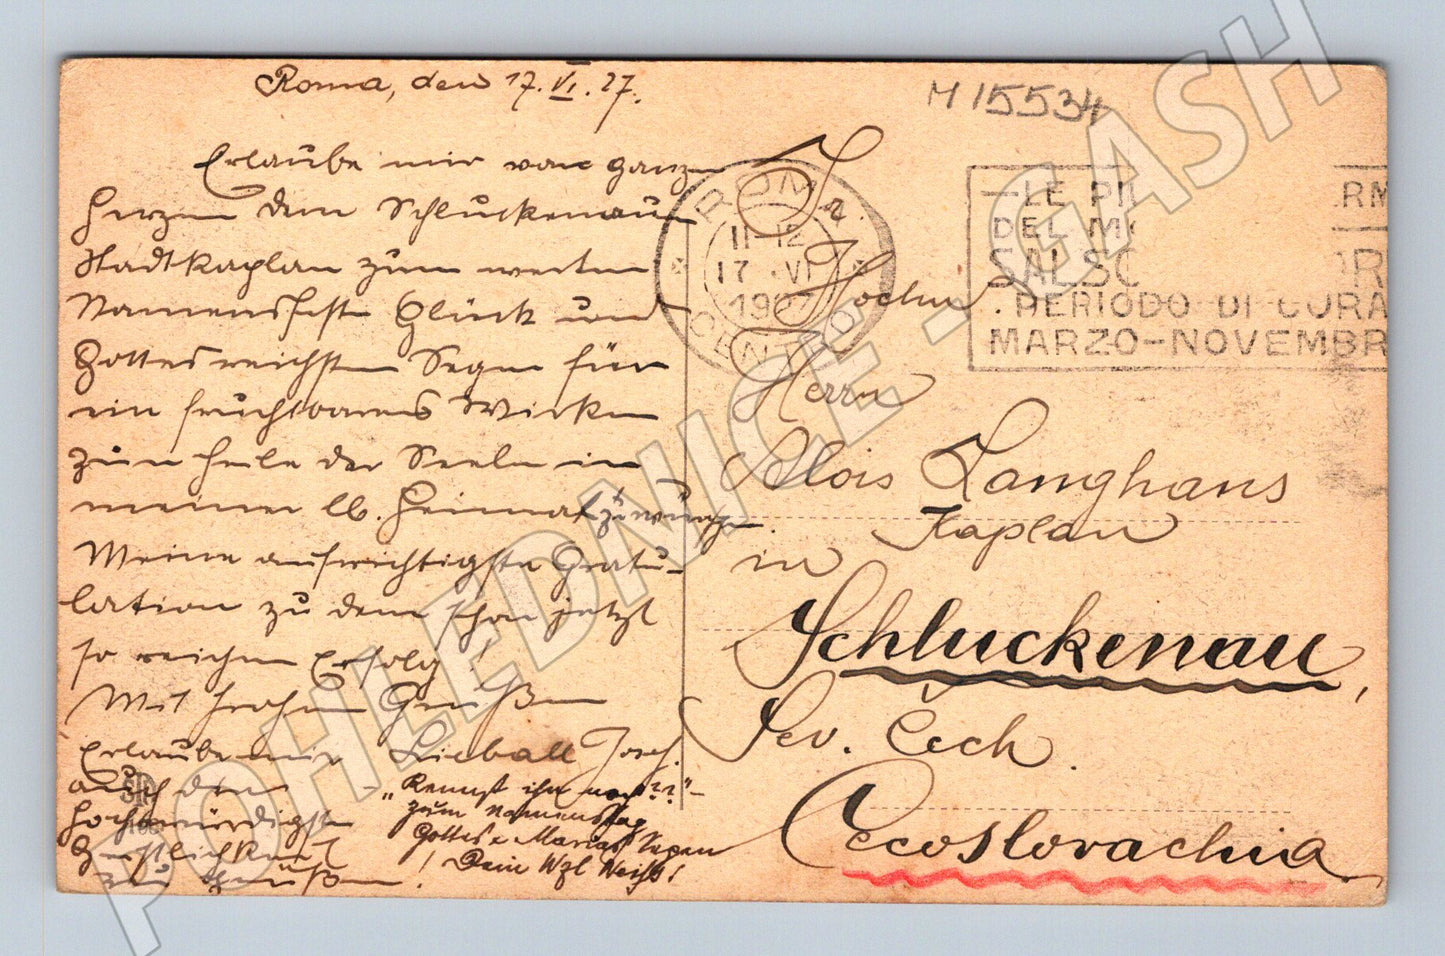 Roma, den 17.VI.27.
Erlaube mir von ganzem
Herzen dem Schluckenauer
Stadtkaplan zum werten
Namensfeste Glück und
Gottes reichsten Segen für
ein fruchtbares Wirken
zum Heile der Seelen in
meiner lb. Heimat zu wünschen
Meine aufrichtigste Gratu-
lation zu dem schon jetzt
so reichen Erfolg!
Mit frohen Grüßen
Josef
Erlaube mir
auch den
hochwürdigste
Geistlichkeit
zu grüßen!
„Kennst ihn noch??"-
zum Namenstag
Gottes u. Marias Segen
! Dein Weiß!
M 15534
ROMA
CENTRO
11-12
17 VI
192
LE PI RM
DEL MO
SALSO AR
. PERIODO DI CURA
MARZO-NOVEMBR
Hochw.
Herrn
Alois Langhans
Kaplan
in
Schluckenau,
Sev. Čech.
Cecoslovachia
POHLEDNICE - GASH